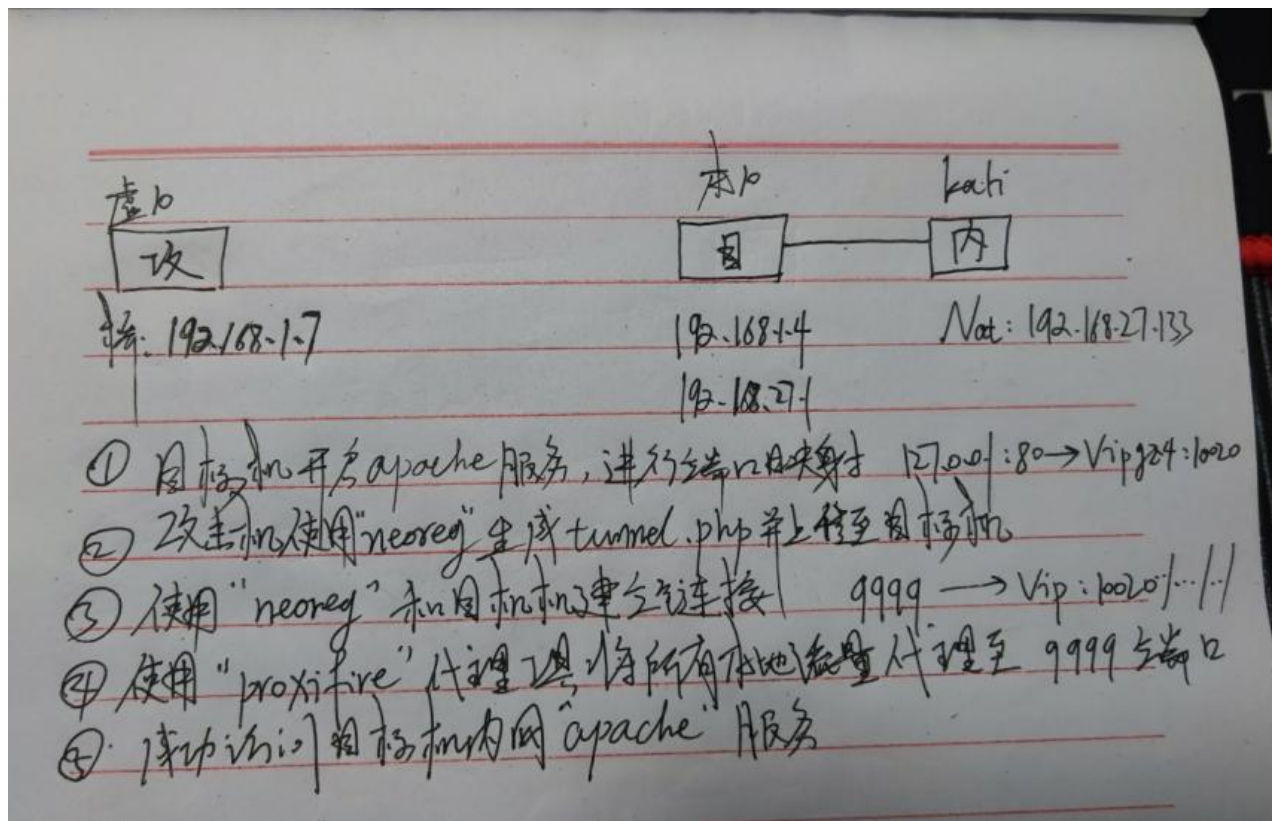 虚10 本10 kali
攻 目 内
桥: 192.168.1.7 192.168.1.4 Nat: 192.168.27.133
192.168.27.1
① 目标机开启apache服务,进行端口映射 127.0.0.1:80→Vipgz4:10020
② 攻击机使用"neoreg"生成tunnel.php并上传至目标机
③ 使用"neoreg"和目标机建立连接 9999 → Vip:10020/../../
④ 使用"proxifire"代理工具将所有本地流量代理至 9999 端口
⑤ 成功访问目标机内网"apache"服务